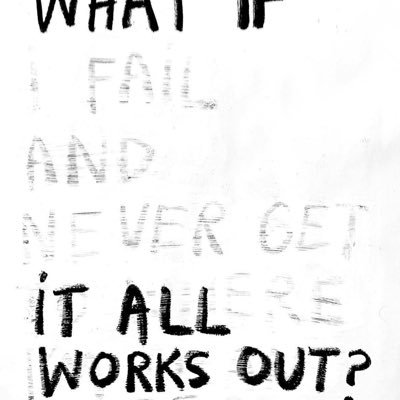 WHAT IF
I FAIL
AND
NEVER GET
IT ALL
WORKS OUT?